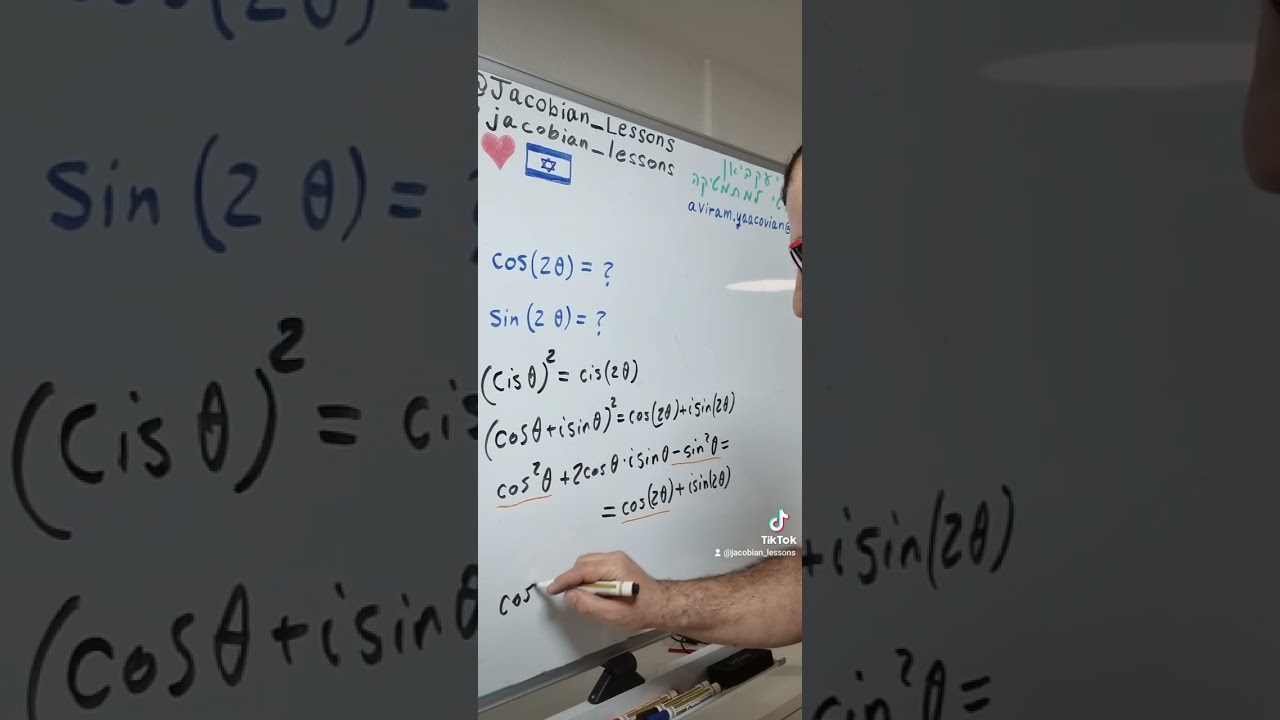 @Jacobian_Lessons
jacobian_lessons
יעקביאן
למתמטיקה
aviram.yaacovian@
cos(2θ) = ?
sin(2θ) = ?
(cisθ)² = cis(2θ)
(cosθ+isinθ)² = cos(2θ)+isin(2θ)
cos²θ+2cosθ·isinθ-sin²θ=
=cos(2θ)+isin(2θ)
cos
TikTok
@jacobian_lessons